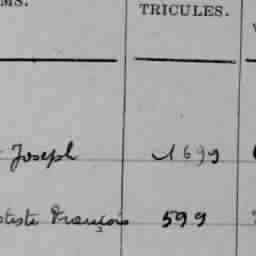 MS.
TRICULES.
Joseph 1699
tiste François 599